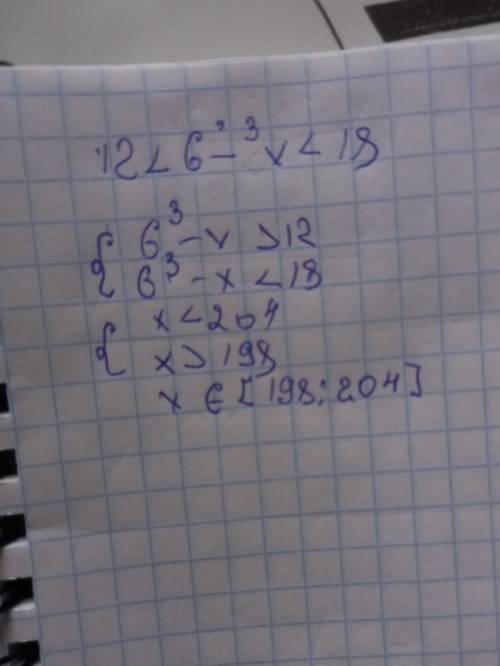 12 < 6 - ³x < 18
{ 6³ - x > 12
{ 6³ - x < 18
{ x < 204
{ x > 198
x ∈ [198; 204]